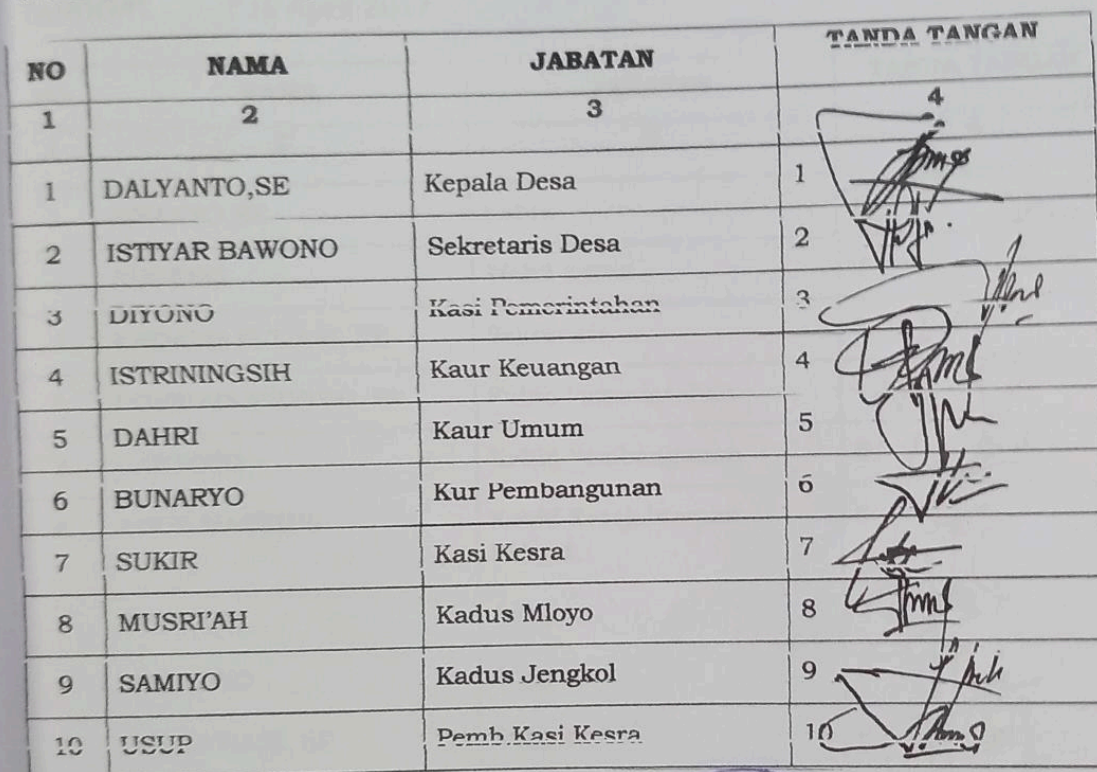 NO NAMA JABATAN TANDA TANGAN
1 2 3 4
1 DALYANTO,SE Kepala Desa 1
2 ISTIYAR BAWONO Sekretaris Desa 2
3 DIYONO Kasi Pemerintahan 3
4 ISTRININGSIH Kaur Keuangan 4
5 DAHRI Kaur Umum 5
6 BUNARYO Kur Pembangunan 6
7 SUKIR Kasi Kesra 7
8 MUSRI'AH Kadus Mloyo 8
9 SAMIYO Kadus Jengkol 9
10 USUP Pemb Kasi Kesra 10